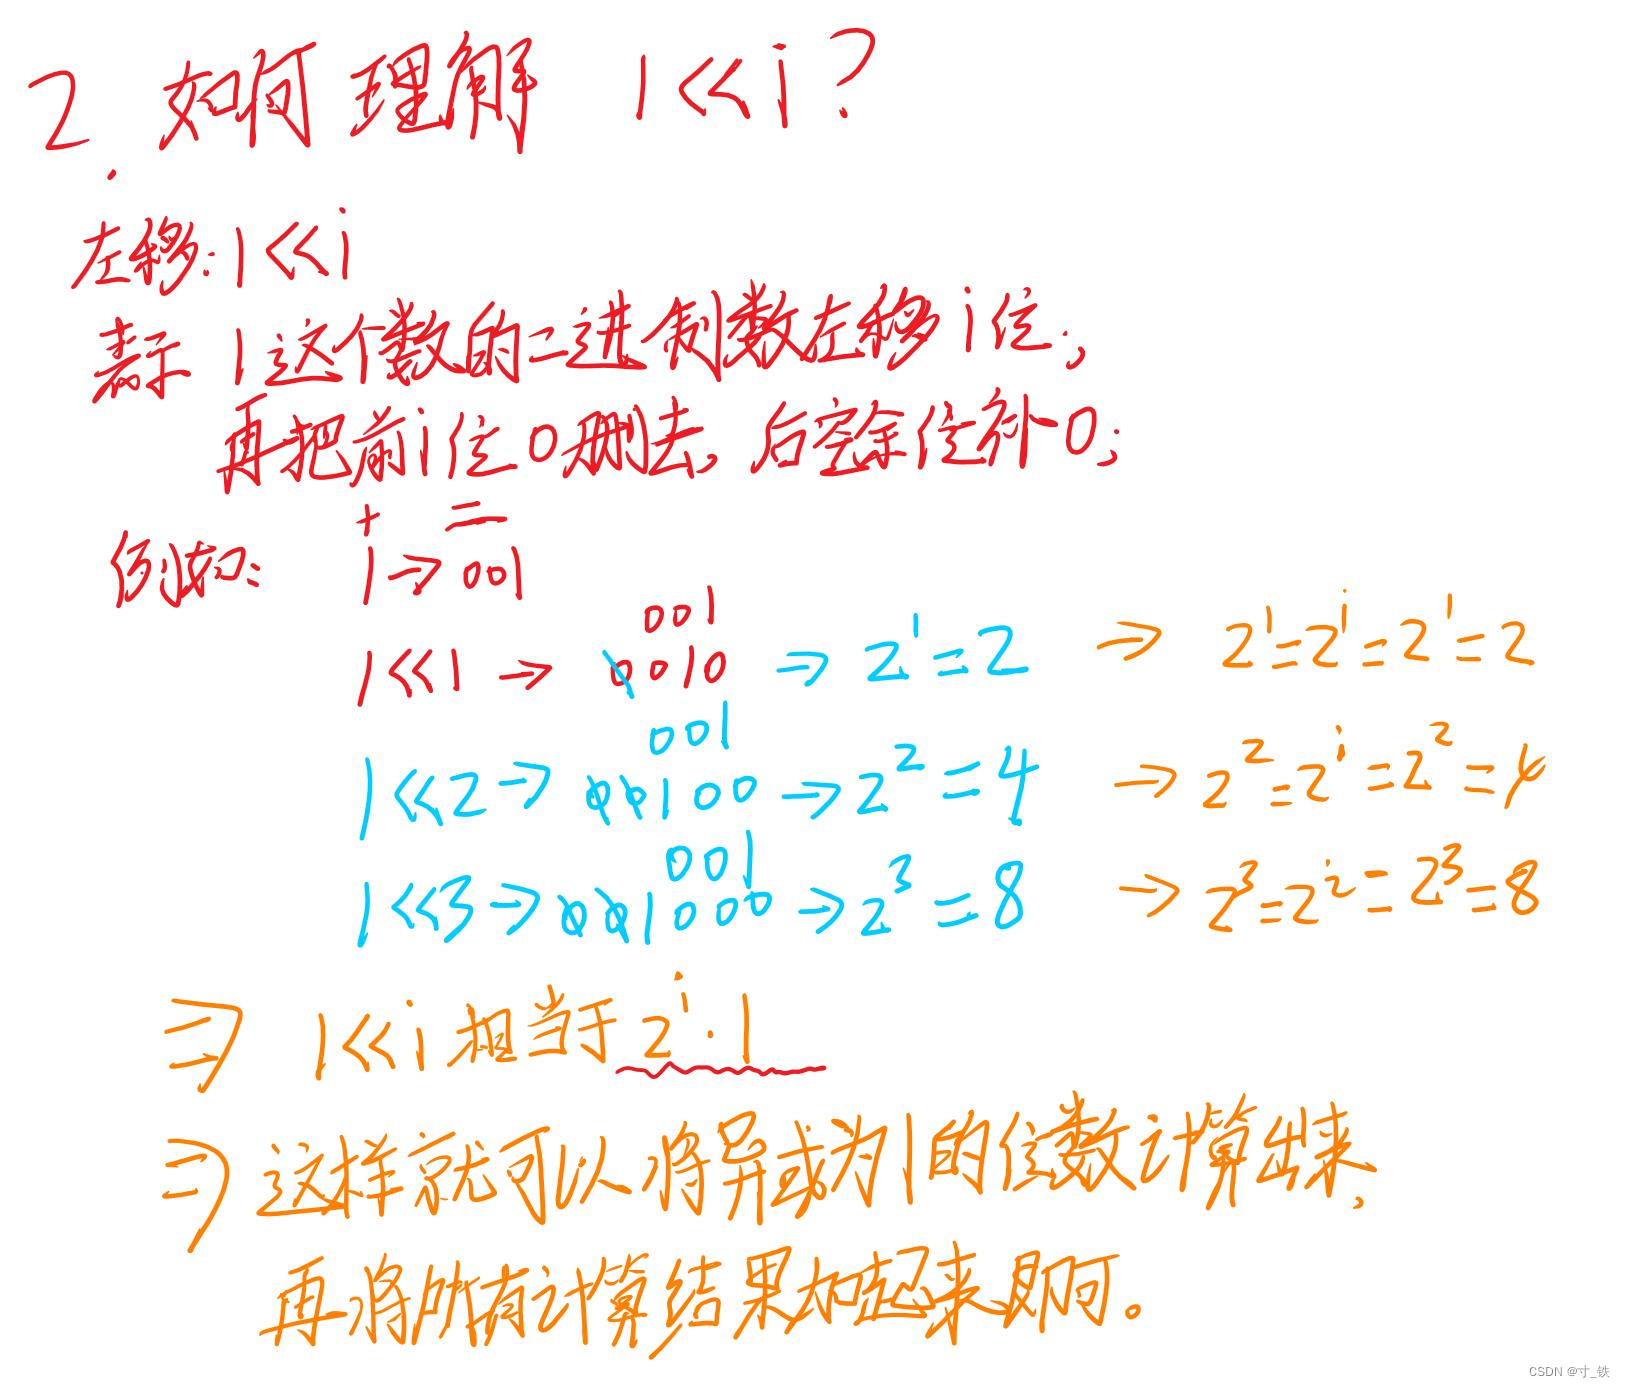 2. 如何理解 1<<i?
左移: 1<<i
表示 1这个数的二进制数左移i位;
再把前i位0删去, 后空余位补0;
十 二
例如: 1→001
001
1<<1 → 0010 → 2¹=2 → 2¹=2ⁱ=2¹=2
001
1<<2 → 00100 → 2²=4 → 2²=2ⁱ=2²=4
001
1<<3 → 001000 → 2³=8 → 2³=2ⁱ=2³=8
⇒ 1<<i 相当于 2ⁱ·1
⇒ 这样就可以将异或为1的位数计算出来,
再将所有计算结果加起来即可。
CSDN @寸_铁